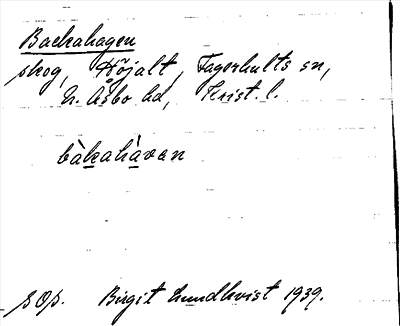 Backahagen
skog, Höjalt, Fagerhults sn,
N. Åsbo hd, Krist. l.
bàkahàvan
SOp. Birgit Lundkvist 1939.